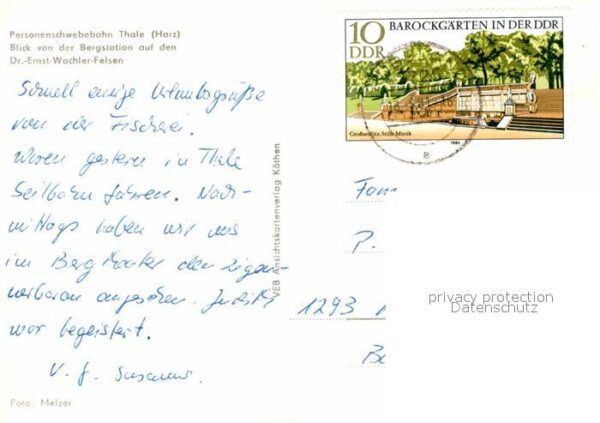 Personenschwebebahn Thale (Harz)
Blick von der Bergstation auf den
Dr.-Ernst-Wachler-Felsen
Schnell einige Urlaubsgrüße
von der Fischerei.
Waren gestern in Thale
Seilbahn fahren. Nach-
mittags haben wir uns
im Bergtheater den Zigeu-
nerbaron angesehen. Judith
war begeistert.
V. f. Susanne
Foto: Melzer
VEB Ansichtskartenverlag Köthen
10
DDR
BAROCKGÄRTEN IN DER DDR
Großsedlitz, Stille Musik
1980
Fam
P.
1293
Be
privacy protection
Datenschutz